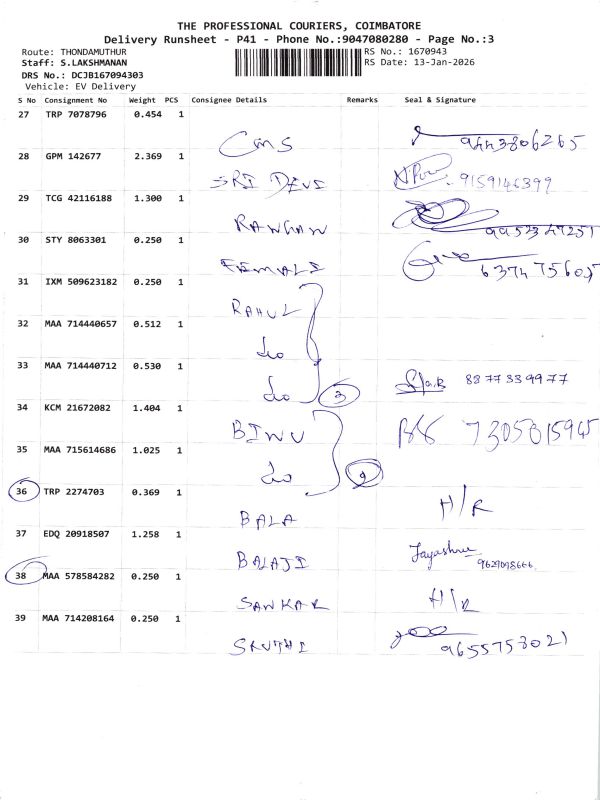 THE PROFESSIONAL COURIERS, COIMBATORE
Delivery Runsheet - P41 - Phone No.:9047080280 - Page No.:3
Route: THONDAMUTHUR RS No.: 1670943
Staff: S.LAKSHMANAN RS Date: 13-Jan-2026
DRS No.: DCJB167094303
Vehicle: EV Delivery
S No Consignment No Weight PCS Consignee Details Remarks Seal & Signature
27 TRP 7078796 0.454 1
Cms 9443806265
28 GPM 142677 2.369 1
SRI DEVI 9159146399
29 TCG 42116188 1.300 1
RANGAN
30 STY 8063301 0.250 1
31 IXM 509623182 0.250 1
RAHUL
32 MAA 714440657 0.512 1
do
33 MAA 714440712 0.530 1
do 3 8377339977
34 KCM 21672082 1.404 1
BINU 7305815945
35 MAA 715614686 1.025 1
do 2
36 TRP 2274703 0.369 1
BALA H/R
37 EDQ 20918507 1.258 1
BALAJI Jayashree
38 MAA 578584282 0.250 1
SANKAR H/R
39 MAA 714208164 0.250 1
SRUTHI 9655753021